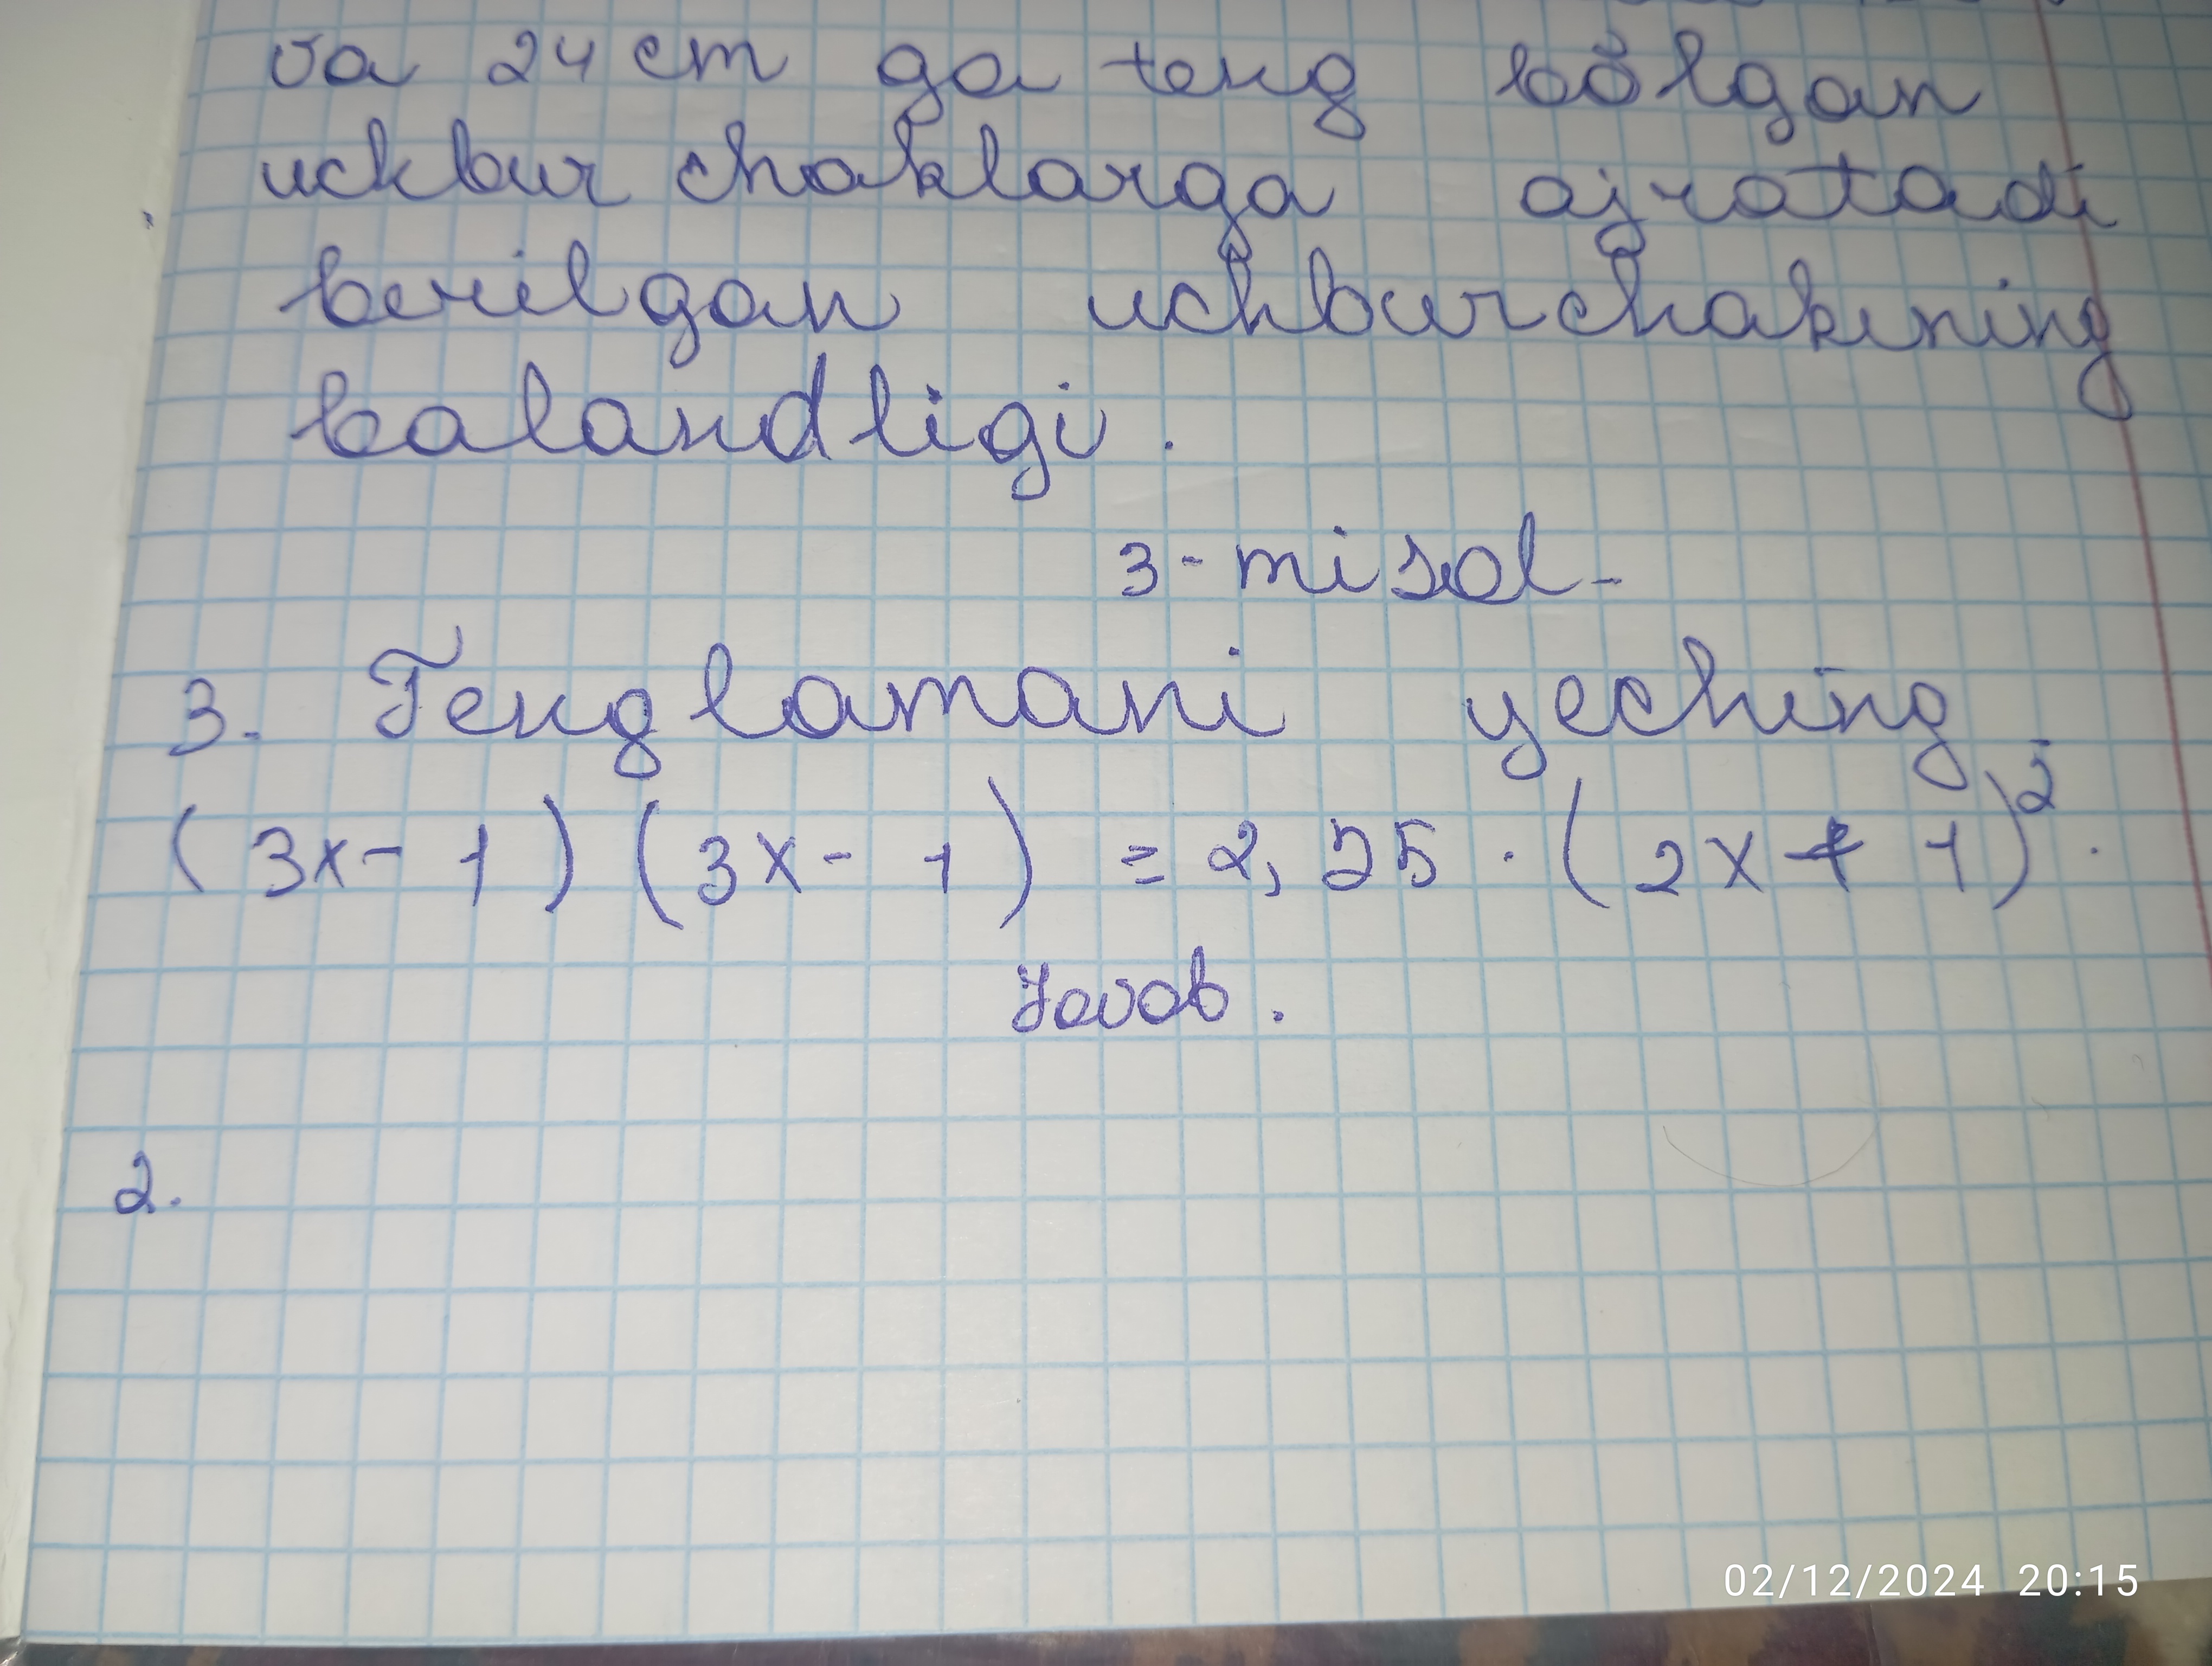 va 24 cm ga teng bõlgan
uchburchaklarga ajratadi
berilgan uchburchakning
balandligi.
3-misol-
3. Tenglamani yeching
(3x-1)(3x-1) = 2,25 · (2x+1)².
Javob.
2.
02/12/2024 20:15